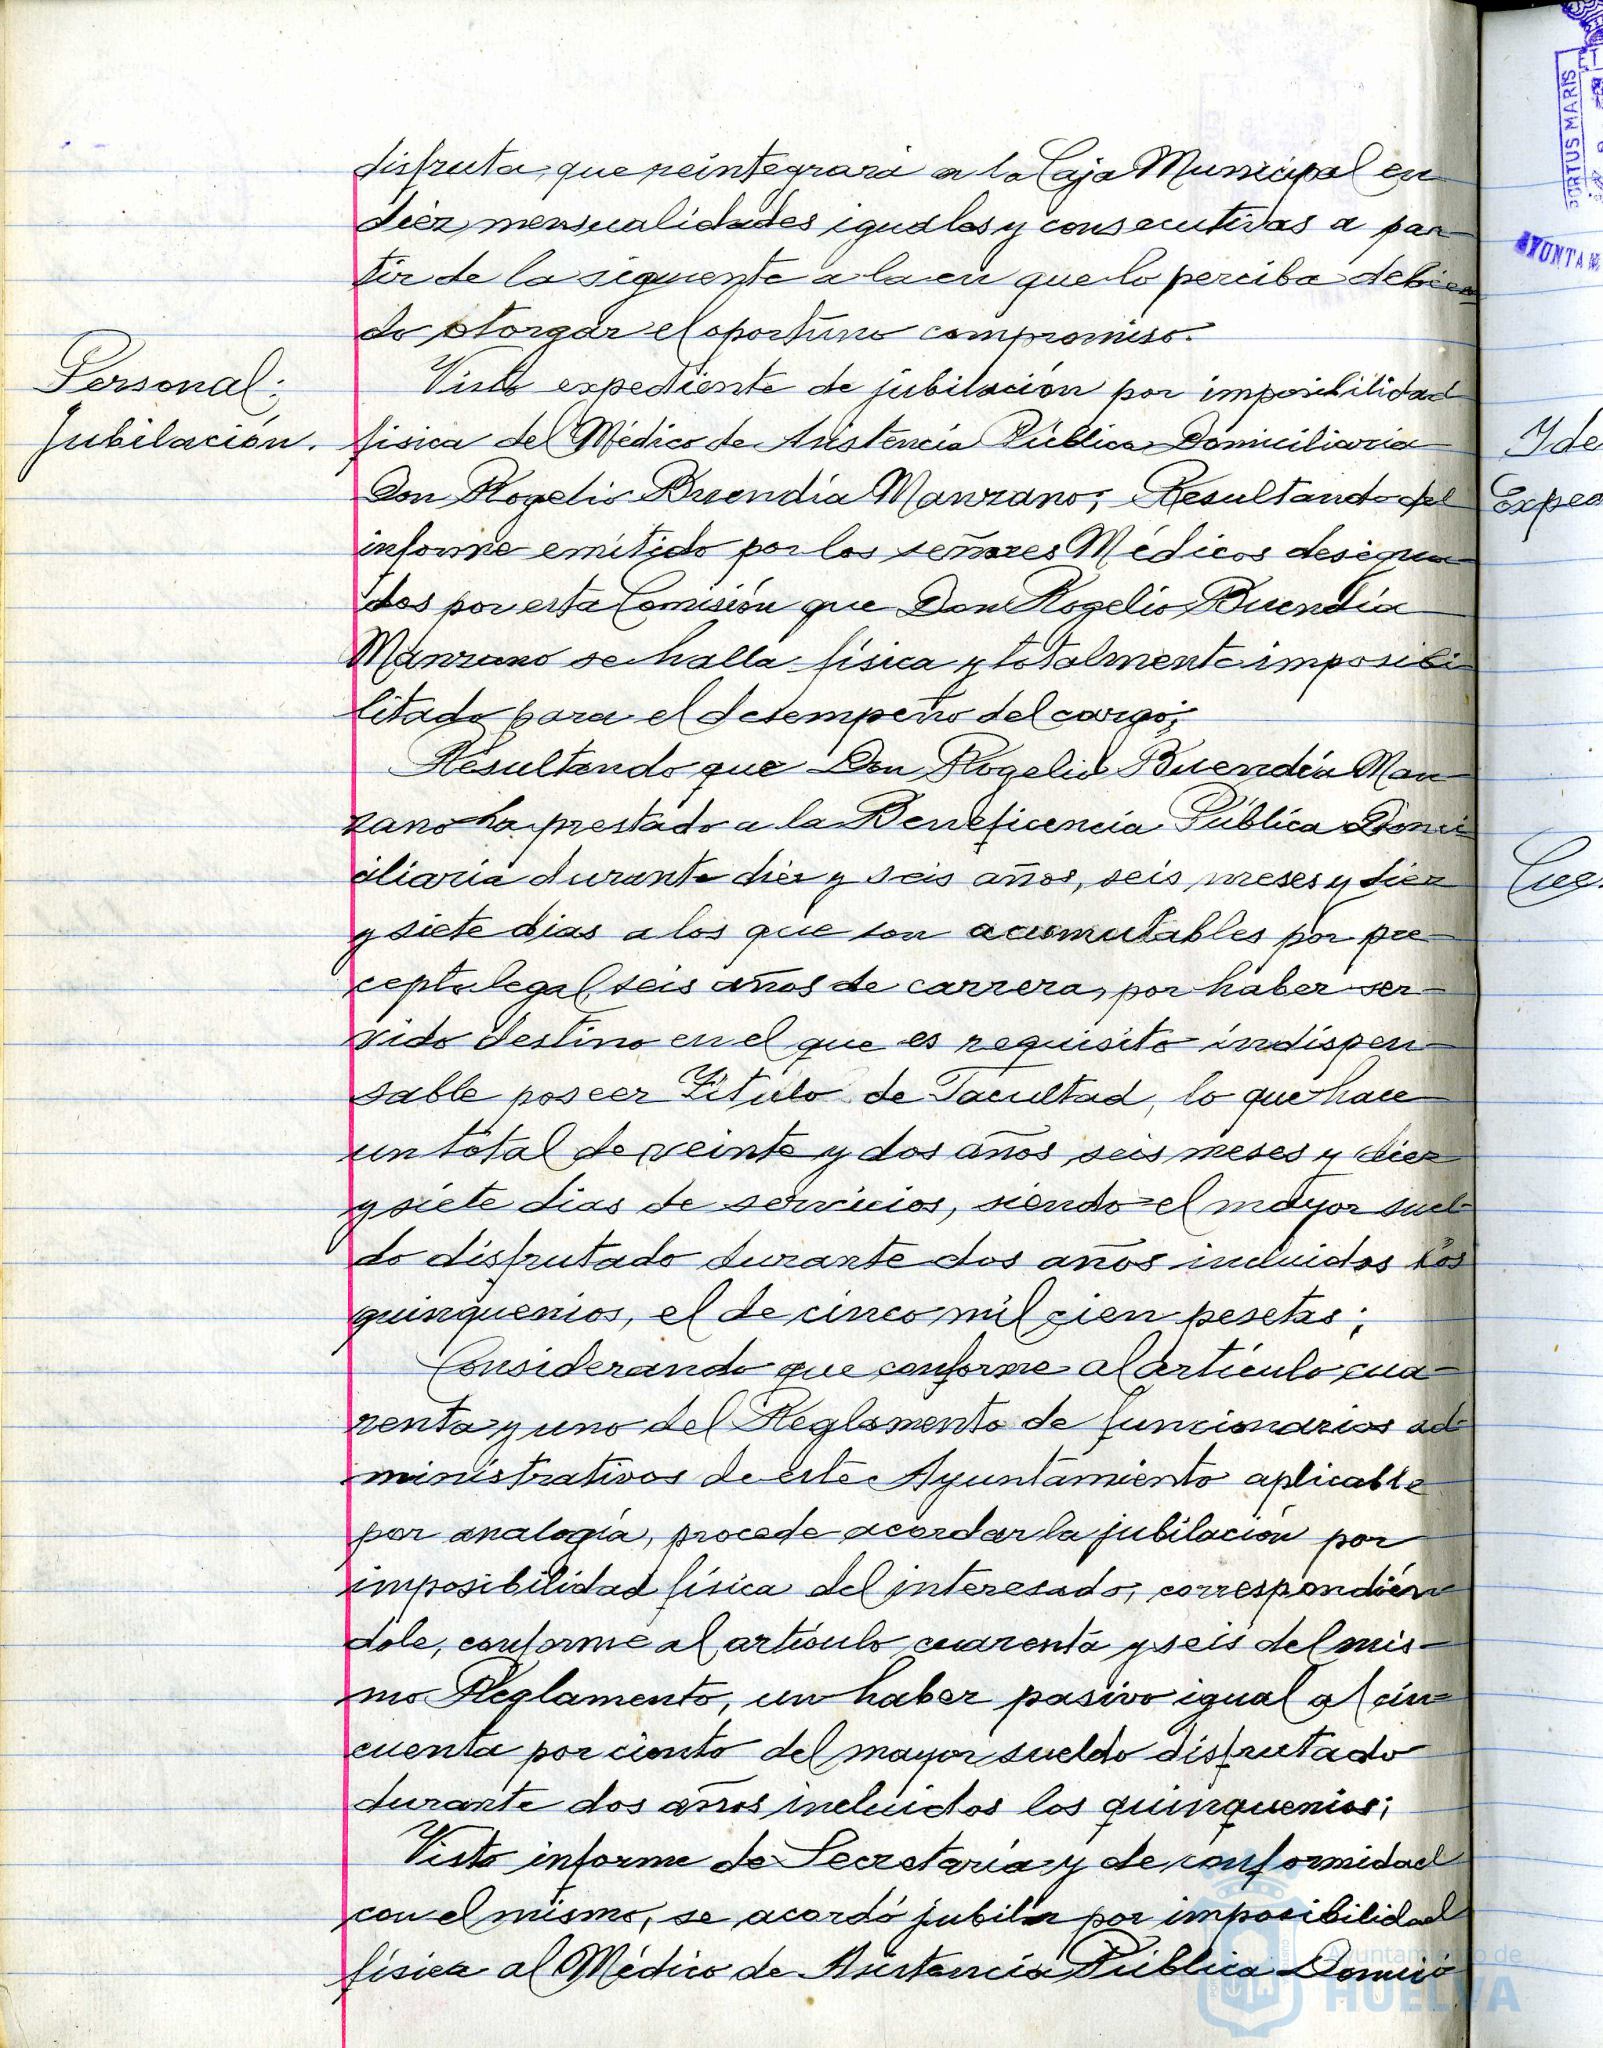 disfruta, que reintegrará a la Caja Municipal en
diez mensualidades iguales y consecutivas a par-
tir de la siguiente a la en que lo perciba debien
do otorgar el oportuno compromiso.
Personal:
Jubilación.
Visto expediente de jubilación por imposibilidad
física del Médico de Asistencia Pública Domiciliaria
Don Rogelio Buendía Manzano; Resultando del
informe emitido por los señores Médicos designa-
dos por esta Comisión que Don Rogelio Buendía
Manzano se halla física y totalmente imposibi
litado para el desempeño del cargo;
Resultando que Don Rogelio Buendía Man
zano ha prestado a la Beneficencia Pública Domi
ciliaria durante diez y seis años, seis meses y diez
y siete dias a los que son acumutables por pre-
cepto legal seis años de carrera, por haber ser-
vido destino en el que es requisito indispen-
sable poseer Título de Facultad, lo que hace
un total de veinte y dos años seis meses y diez
y siete dias de servicios, siendo el mayor suel-
do disfrutado durante dos años incluidos los
quinquenios, el de cinco mil cien pesetas;
Considerando que conforme al artículo cua-
renta y uno del Reglamento de funcionarios ad-
ministrativos de este Ayuntamiento aplicable
por analogía, procede acordar la jubilación por
imposibilidad física del interesado, correspondién
dole, conforme al artículo cuarenta y seis del mis-
mo Reglamento, un haber pasivo igual al cin-
cuenta por ciento del mayor sueldo disfrutado
durante dos años incluidos los quinquenios;
Visto informe de Secretaría y de conformidad
con el mismo, se acordó jubilar por imposibilidad
física al Médico de Asistencia Pública Domici
PORTUS MARIS
ET
AYUNTAM
Ide
Exped
Ayuntamiento de
HUELVA